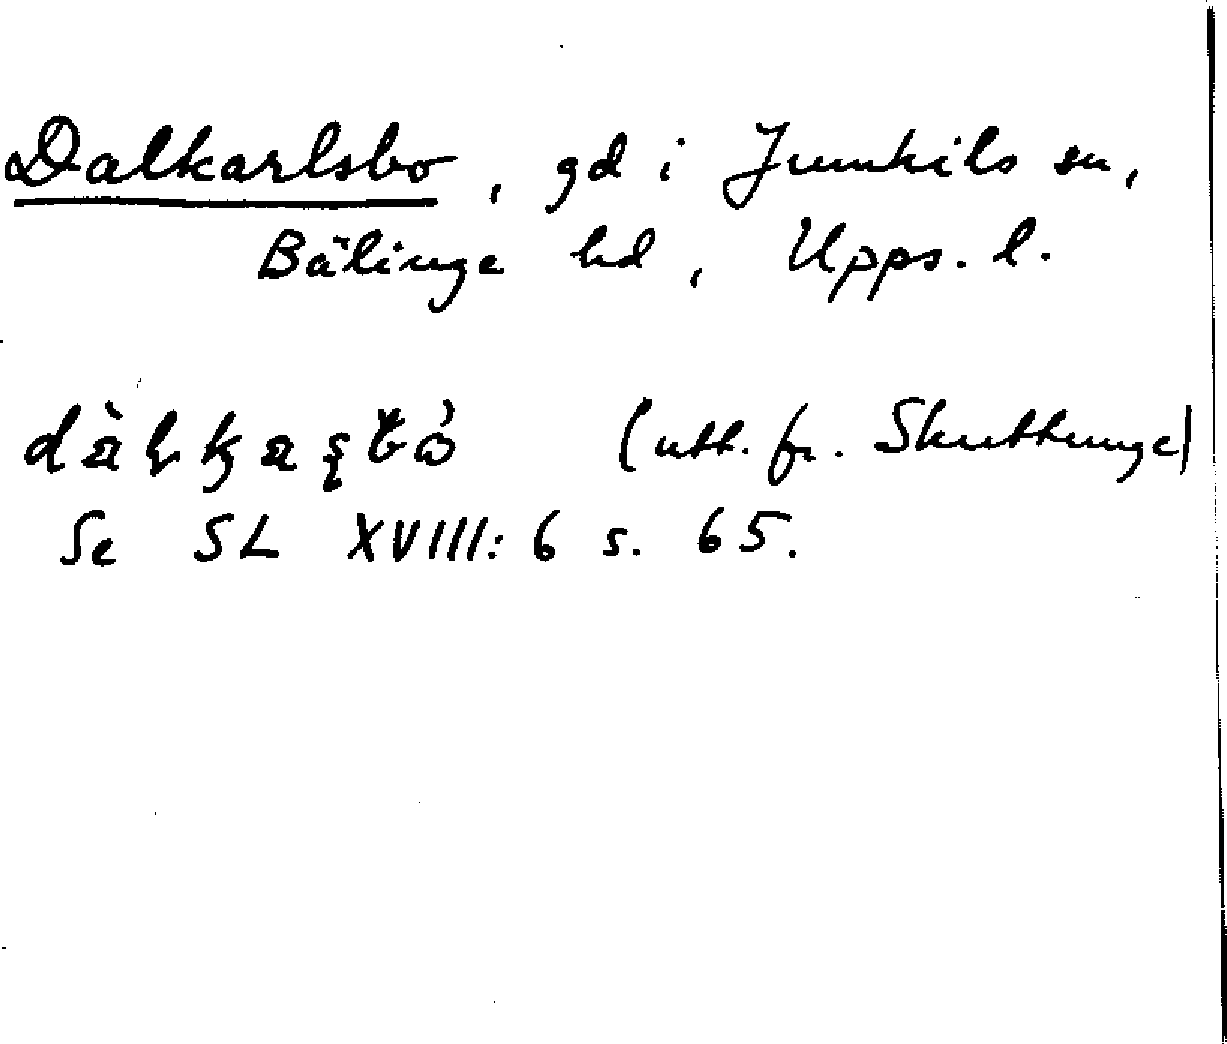 Dalkarlsbo, gd i Jumkils sn,
Bälinge hd, Upps. l.
(utt. fr. Skuttunge)
Se SL XVIII:6 s. 65.